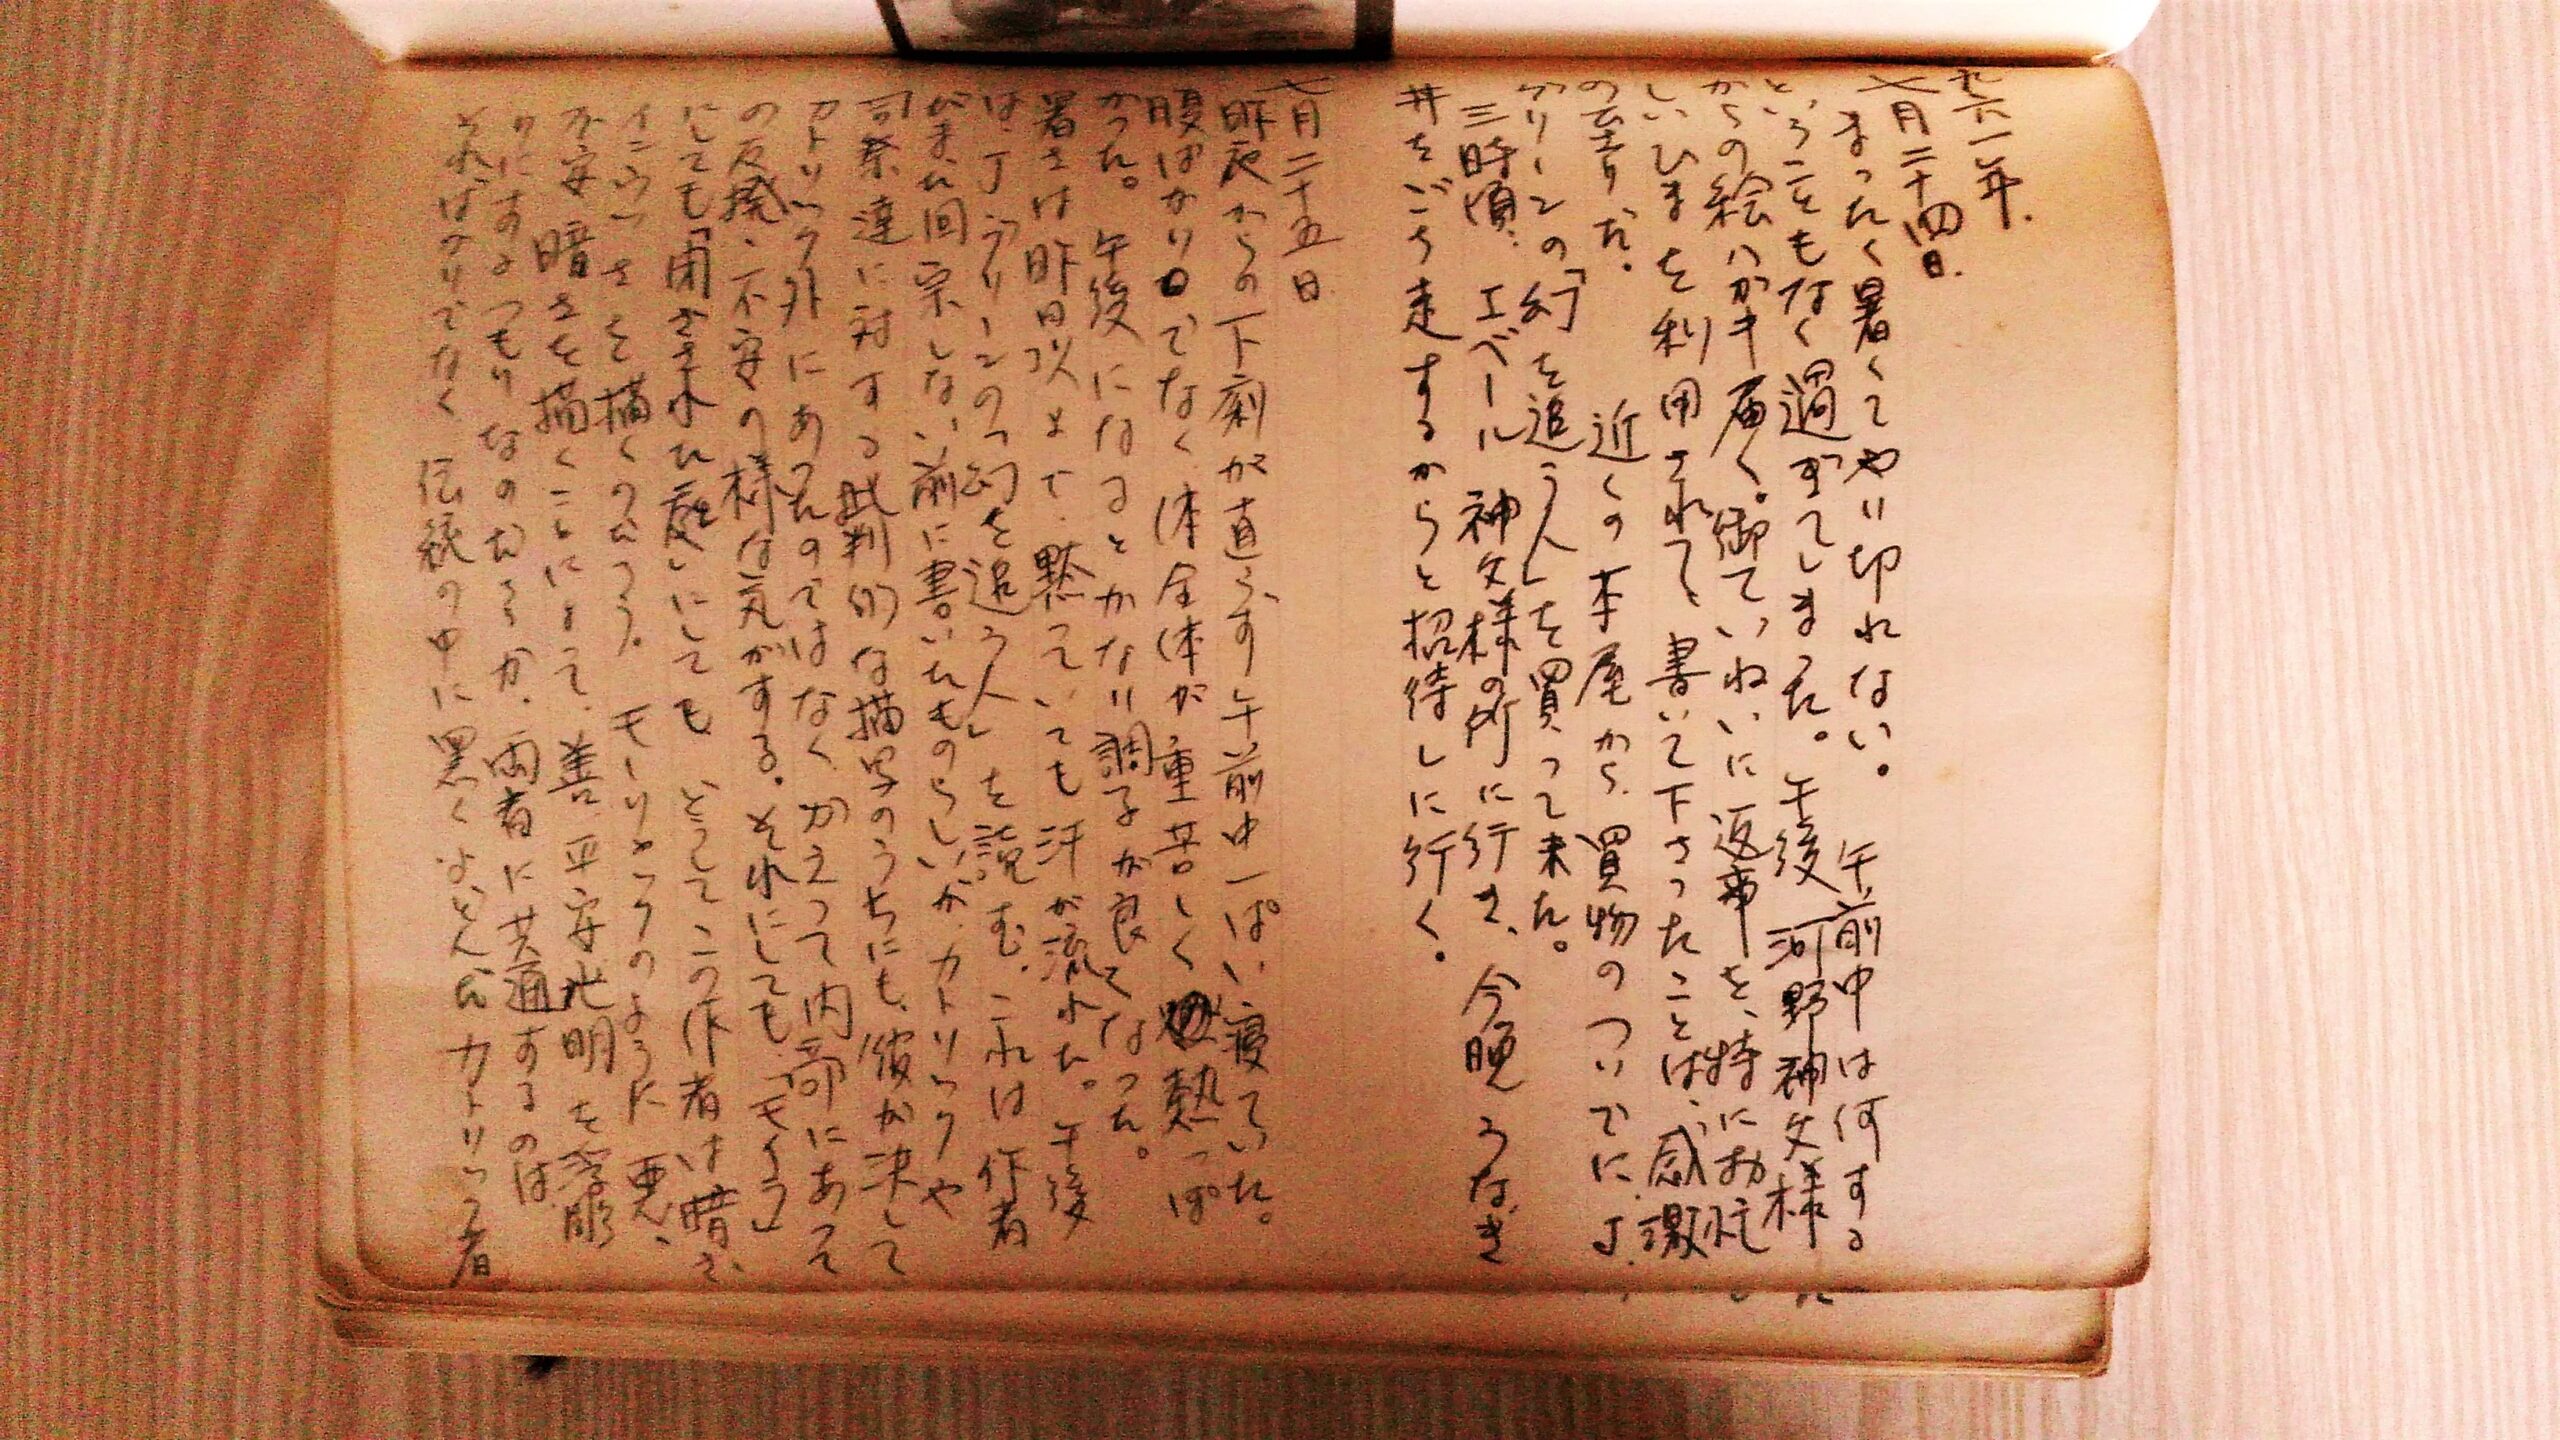 一九六一年.
七月二十四日.
まったく暑くてやり切れない。 午前中は何する
ということもなく過ぎてしまった。午後 河野神父様
からの絵ハガキ届く。御ていねいに返事を、特にお忙し
いひまを利用されて、書いて下さったことは、感激
の至りだ。 近くの本屋から、買物のついでに、J.
グリーンの「幻を追う人」を買って来た。
三時頃、エベール 神父様の所に行き、今晩 うなぎ
丼をごち走するからと招待しに行く。
七月二十五日.
昨夜からの下痢が直らず午前中一ぱい寝ていた。
腹ばかりでなく、体全体が重苦しく 熱っぽ
かった。 午後になるとかなり調子が良くなった。
暑さは昨日以上で、黙っていても汗が流れた。午後
は、J グリーンの「幻を追う人」を読む。これは作者
がまだ回宗しない前に書いたものらしいが、カトリックや
司祭達に対する批判的な描写のうちにも、彼が決して
カトリック外にあったのではなく、かえって内部にあって
の反撥、不安の様な気がする。それにしても、「モイラ」
にしても「閉ざされた庭」にしても どうしてこの作者は暗さ、
を描くのだろう。 モーリャックのように 悪、
不安 暗さを描くことによって、善、平安 光明を浮彫
りにするつもりなのだろうか、両者に共通するのは、
そればかりでなく 伝統の中に黒くよどんだカトリック者